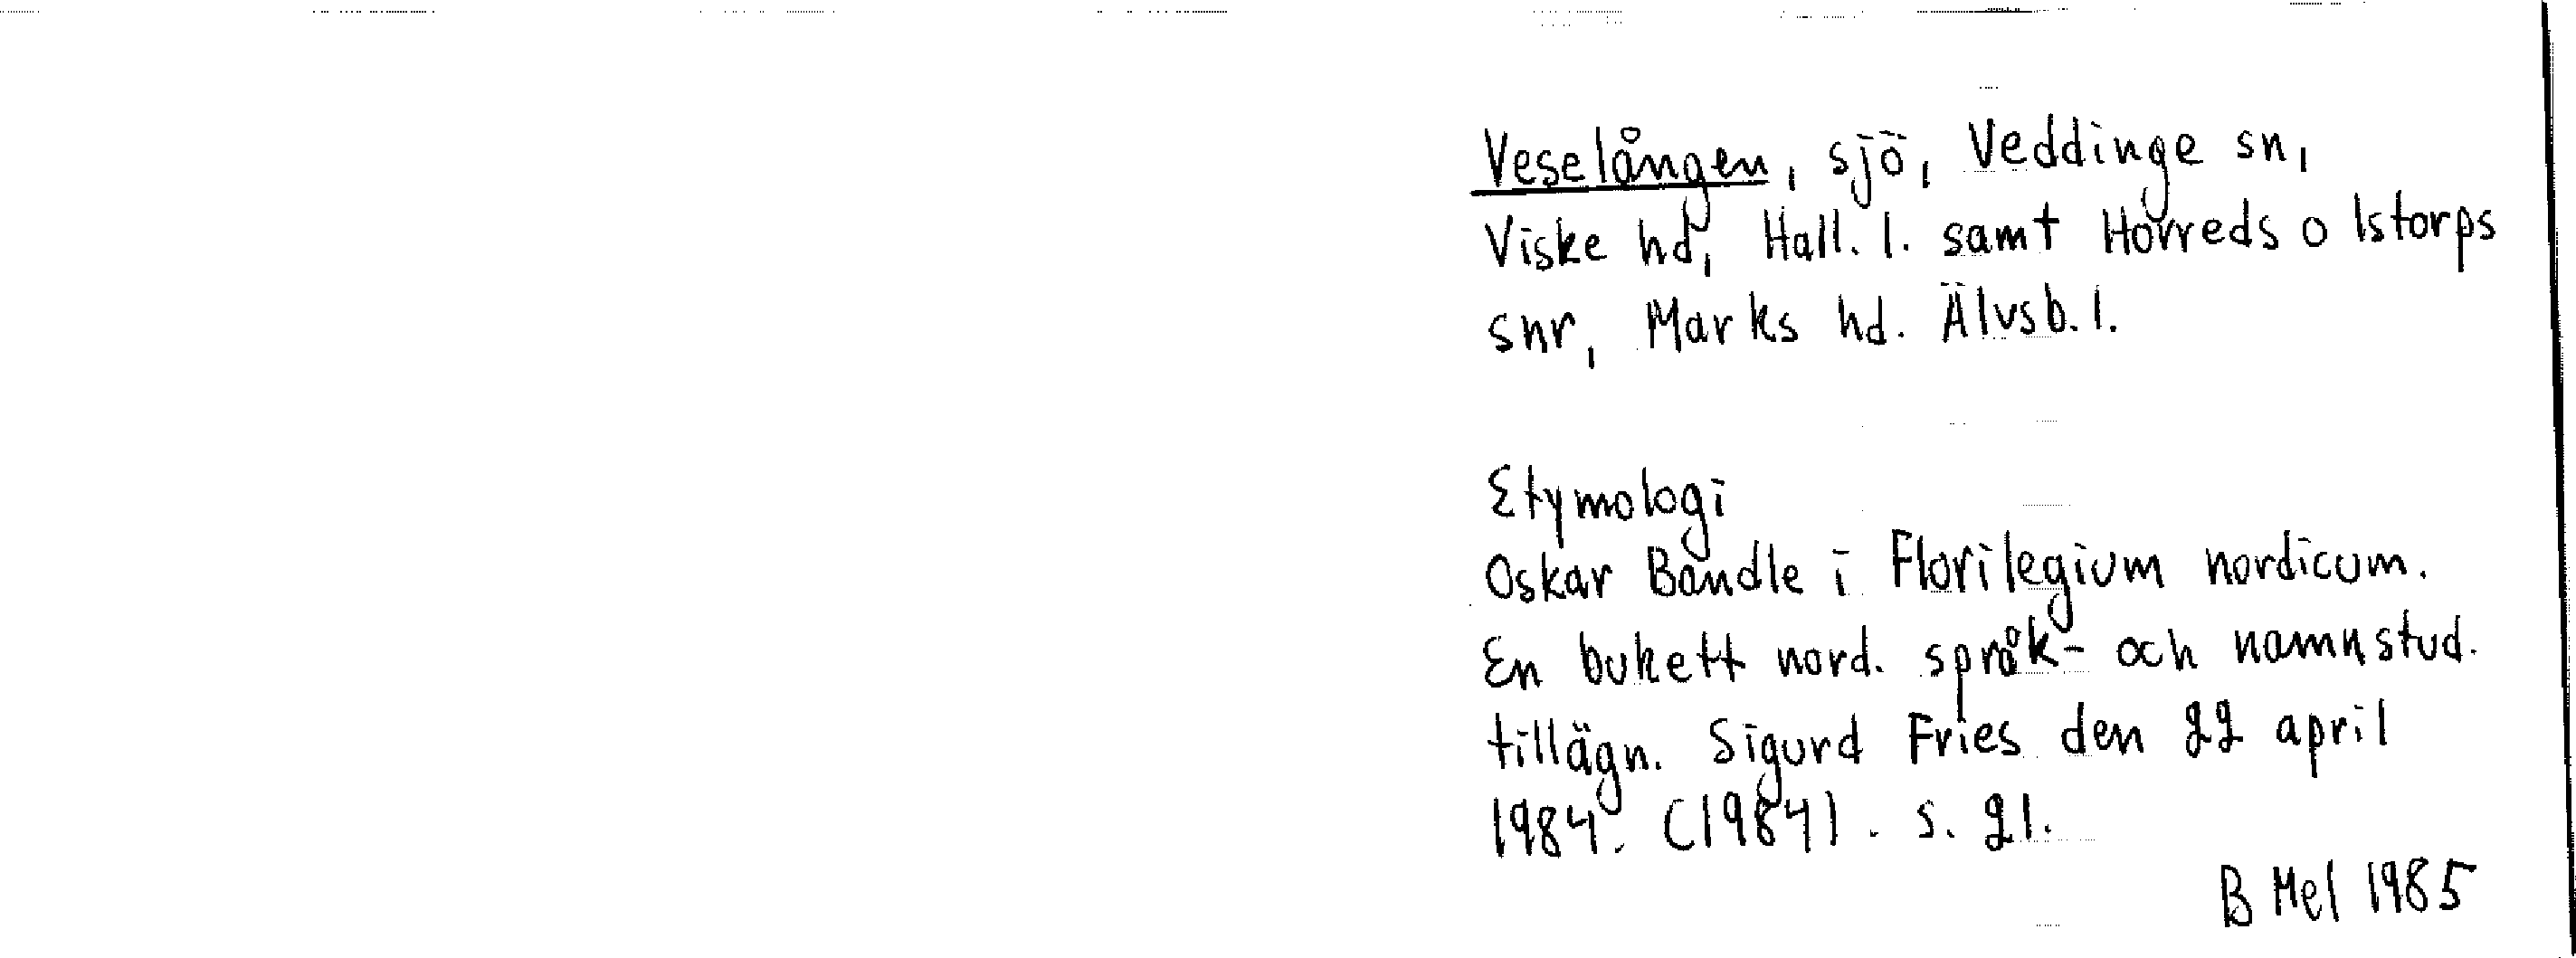 Veselången, sjö, Veddinge sn,
Viske hd, Hall. l. samt Horreds o Istorps
snr, Marks hd. Älvsb. l.
Etymologi
Oskar Bandle i Florilegium nordicum.
En bukett nord. språk- och namnstud.
tillägn. Sigurd Fries den 22 april
1984. (1984). s. 21.
B Mel 1985